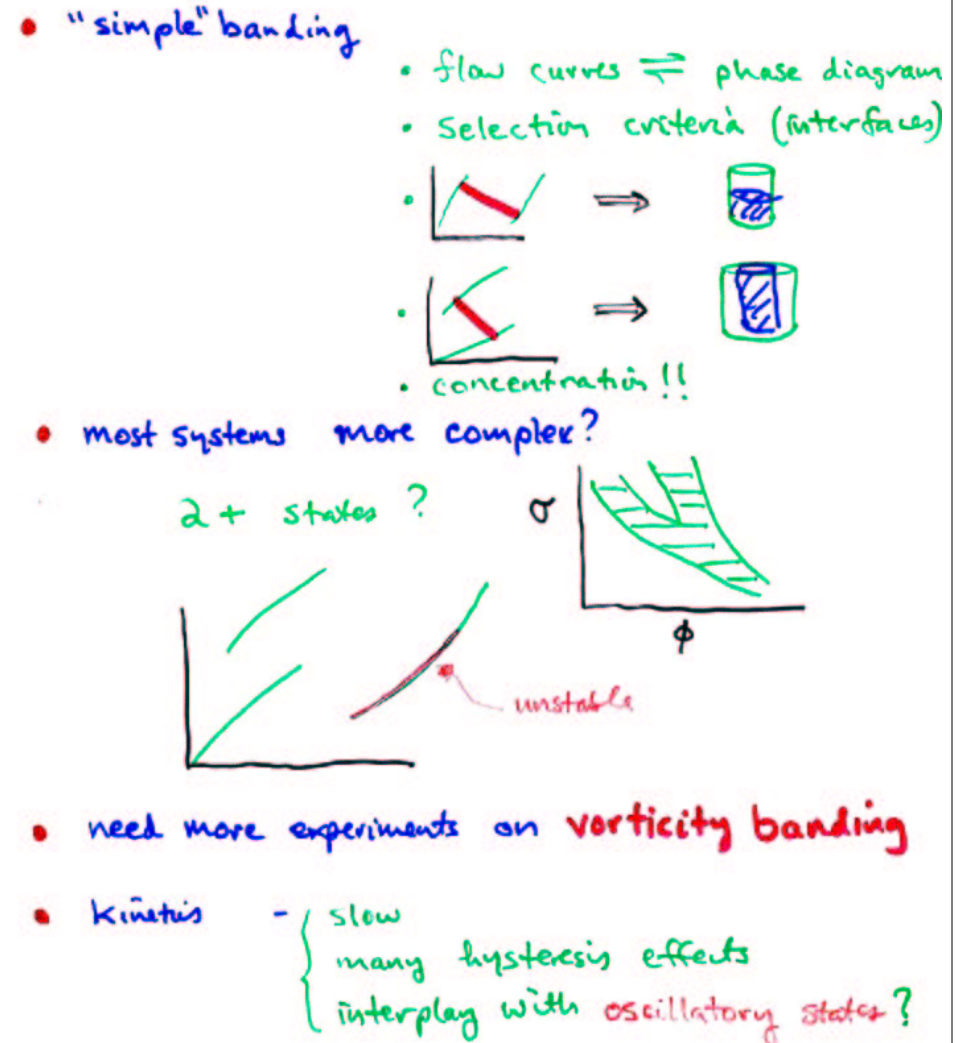 • "simple" banding
• flow curves ⇌ phase diagram
• selection criteria (interfaces)
• ⟹
• ⟹
• concentration!!
• most systems more complex?
2+ states ?
σ
ϕ
unstable
• need more experiments on vorticity banding
• Kinetics - { slow
many hysteresis effects
interplay with oscillatory states?